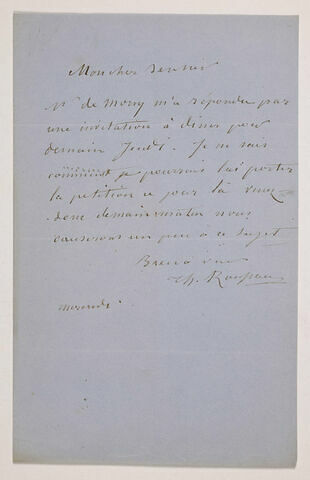 Mon cher Sensier
Mr de Morny m'a répondu par
une invitation à diner pour
demain Jeudi. Je ne sais
comment je pourrais lui porter
la petition ce jour là venez
donc demain matin nous
causerons un peu à ce sujet
à vous
Th. Rousseau
mercredi